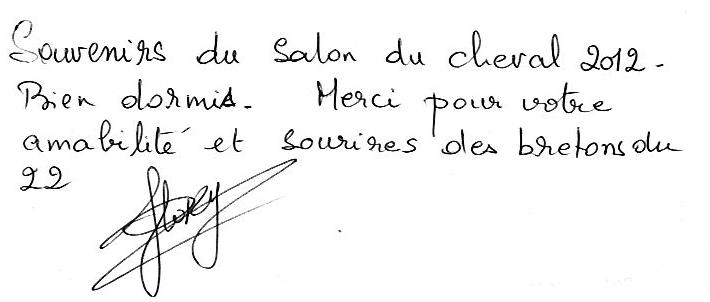 Souvenirs du salon du cheval 2012.
Bien dormis. Merci pour votre
amabilité et sourires des bretons du
22